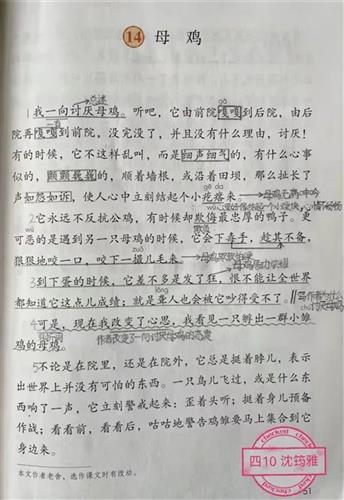 14 母 鸡
总述
1我一向讨厌母鸡。听吧，它由前院嘎嘎到后院，由后
院再嘎嘎到前院，没完没了，并且没有什么理由，讨厌！
有的时候，它不这样乱叫，而是细声细气的，有什么心事
似的，颤颤巍巍的，顺着墙根，或沿着田坝，那么扯长了
声如怨如诉，使人心中立刻结起个小疙瘩来。
2它永远不反抗公鸡，有时候却欺侮最忠厚的鸭子。更
可恶的是遇到另一只母鸡的时候，它会下毒手，趁其不备，
狠狠地咬一口，咬下一撮儿毛来。
3到下蛋的时候，它差不多是发了狂，恨不能让全世界
都知道它这点儿成绩；就是聋人也会被它吵得受不了。
4可是，现在我改变了心思，我看见一只孵出一群小雏
鸡的母鸡。
作者改变了一向讨厌母鸡的态度
5不论是在院里，还是在院外，它总是挺着脖儿，表示
出世界上并没有可怕的东西。一只鸟儿飞过，或是什么东
西响了一声，它立刻警戒起来：歪着头听；挺着身儿预备
作战；看看前，看看后，咕咕地警告鸡雏要马上集合到它
身边来。
本文作者老舍，选作课文时有改动。
51
checked
四10 沈筠雅
checked